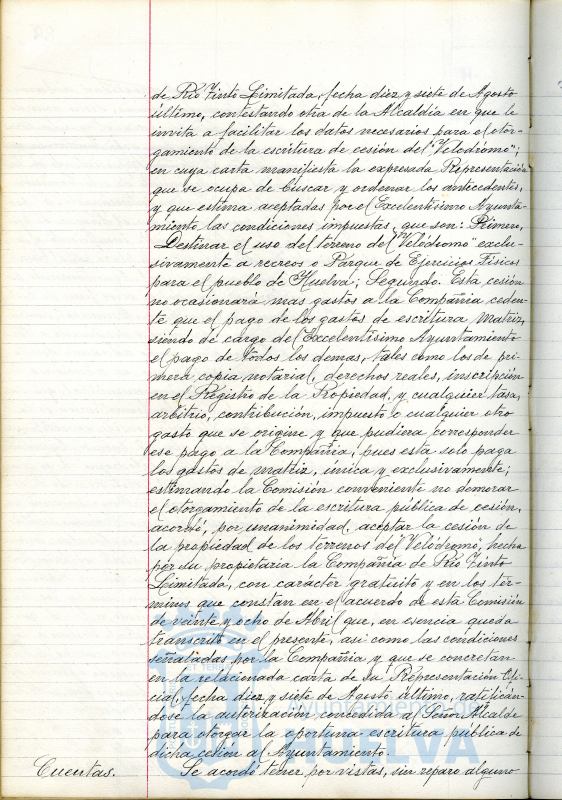 de Rio Tinto Limitada, fecha diez y siete de Agosto
último, contestando otra de la Alcaldía en que le
invita a facilitar los datos necesarios para el otor-
gamiento de la escritura de cesión del "Velodromo";
en cuya carta manifiesta la expresada Representación
que se ocupa de buscar y ordenar los antecedentes,
y que estima aceptadas por el Excelentísimo Ayunta-
miento las condiciones impuestas, que son: Primera,
Destinar el uso del terreno del "Velódromo" exclu-
sivamente a recreos o Parque de Ejercicios Físicos
para el pueblo de Huelva; Segundo. Esta cesión
no ocasionará mas gastos a la Compañia ceden-
te que el pago de los gastos de escritura Matriz,
siendo de cargo del Excelentísimo Ayuntamiento
el pago de todos los demas, tales como los de pri-
mera copia notarial, derechos reales, inscripción
en el Registro de la Propiedad, y cualquier tasa,
arbitrio, contribución, impuesto o cualquier otro
gasto que se origine y que pudiera corresponder
ese pago a la Compañia, pues esta solo paga
los gastos de matriz, única y exclusivamente;
estimando la Comisión conveniente no demorar
el otorgamiento de la escritura pública de cesión,
acordó, por unanimidad, aceptar la cesión de
la propiedad de los terrenos del "Velódromo", hecha
por su propietaria la Compañia de Rio Tinto
Limitada, con carácter gratuito y en los tér-
minos que constan en el acuerdo de esta Comisión
de veinte y ocho de Abril que, en esencia queda
transcrito en el presente, asi como las condiciones
señaladas por la Compañia y que se concretan
en la relacionada carta de su Representación Ofi-
cial, fecha diez y siete de Agosto último, ratificán-
dose la autorización concedida al Señor Alcalde
para otorgar la oportuna escritura pública de
dicha cesión al Ayuntamiento.
Cuentas. Se acordó tener por vistas, sin reparo alguno
Ayuntamiento de
HUELVA